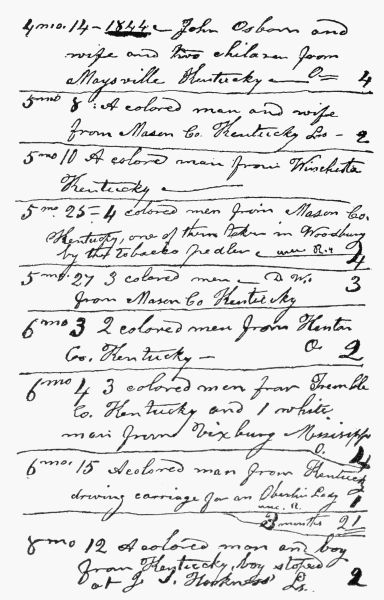 4 mo. 14 - 1844 - John Osborn and
wife and two children from
Maysville Kentucky — O= 4
5 mo 8 : A colored man and wife
from Mason Co. Kentucky Ls - 2
5 mo 10 A colord man from
Kentucky —
5 mo. 25 - 4 colored men from Mason Co.
Kentucky, one of them taken in Woodbury
by the tobacko pedler 4
5 mo. 27 3 colored men - D W. 3
from Mason Co Kentucky
6 mo 3 2 colored men from Kenton
Co. Kentucky - O 2
6 mo 4 3 colored men from Tremble
Co. Kentucky and 1 white
man from Vixburg Missisippi
O. 4
6 mo. 15 A colored man from Kentucky
driving carriage for an Oberlin Lady 1
3 months 21
8 mo 12 A colored man and boy
from Kentucky, boy stoped
at J. Ls. 2